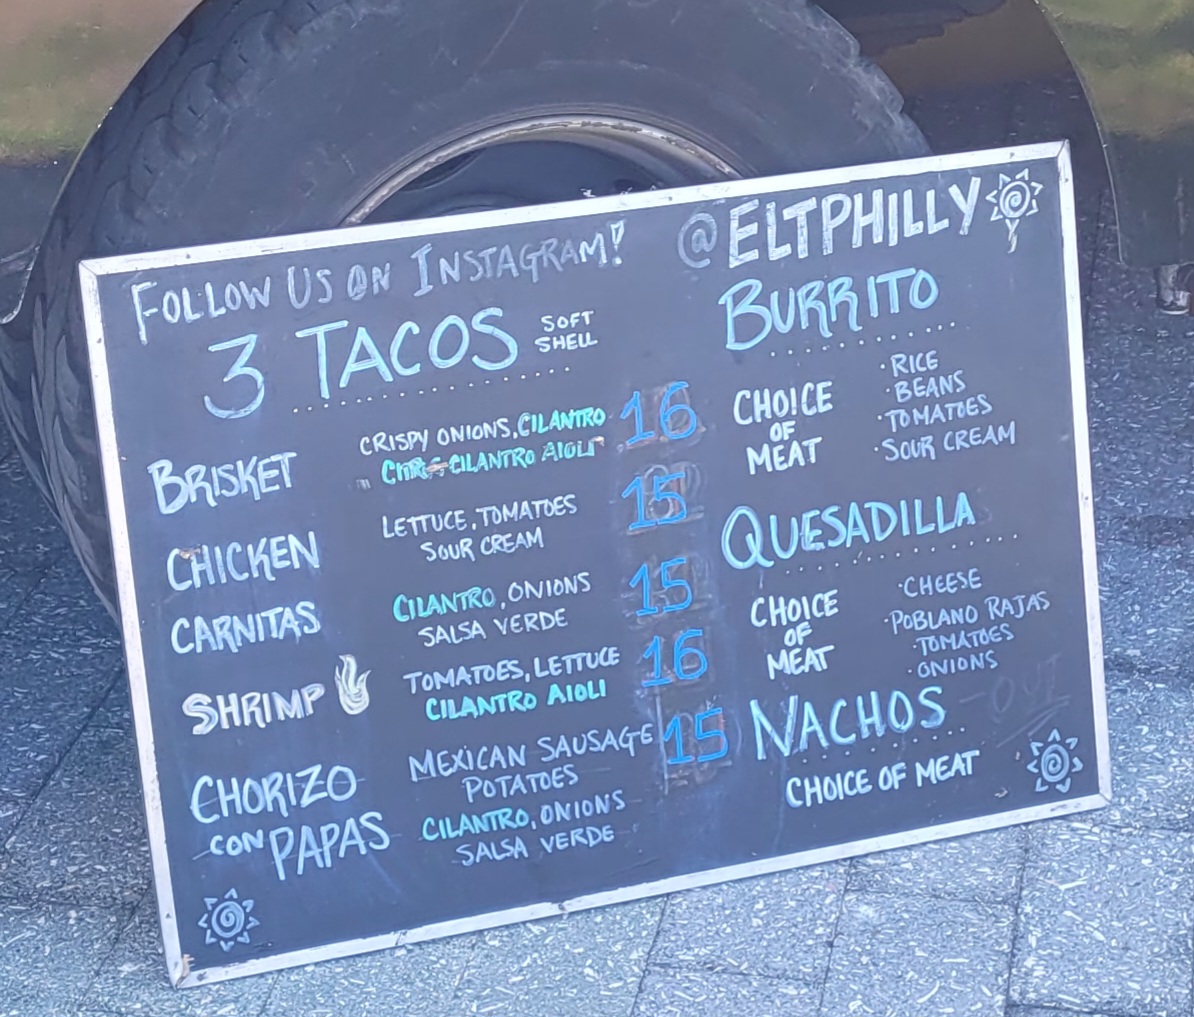 FOLLOW US ON INSTAGRAM! @ELTPHILLY
3 TACOS SOFT SHELL
BRISKET CRISPY ONIONS, CILANTRO 16
CILANTRO AIOLI
CHICKEN LETTUCE, TOMATOES 15
SOUR CREAM
CARNITAS CILANTRO, ONIONS 15
SALSA VERDE
SHRIMP TOMATOES, LETTUCE 16
CILANTRO AIOLI
CHORIZO MEXICAN SAUSAGE 15
POTATOES
CON PAPAS CILANTRO, ONIONS
SALSA VERDE
BURRITO
CHOICE
OF
MEAT
·RICE
·BEANS
·TOMATOES
·SOUR CREAM
QUESADILLA
CHOICE
OF
MEAT
·CHEESE
·POBLANO RAJAS
·TOMATOES
·ONIONS
NACHOS
CHOICE OF MEAT